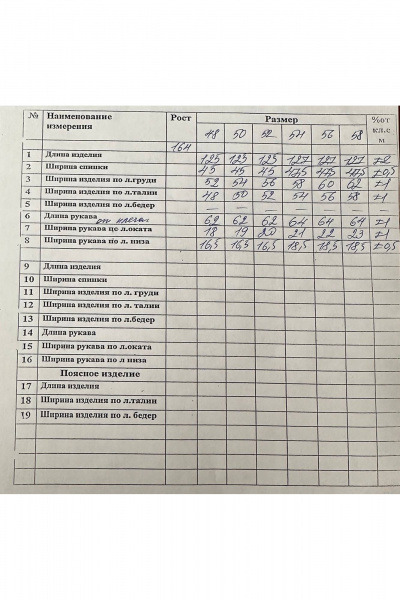 № Наименование измерения Рост Размер %от кл.с м
48 50 52 54 56 58
164
1 Длина изделия 125 125 125 127 127 127 ±2
2 Ширина спинки 45 45 45 47,5 47,5 47,5 ±0,5
3 Ширина изделия по л.груди 52 54 56 58 60 62 ±1
4 Ширина изделия по л.талии 48 50 52 54 56 58 ±1
5 Ширина изделия по л.бедер — —
6 Длина рукава от плеча 62 62 62 64 64 64 ±1
7 Ширина рукава по л.оката 18 19 20 21 22 23 ±1
8 Ширина рукава по л. низа 16,5 16,5 16,5 18,5 18,5 18,5 ±0,5
9 Длина изделия
10 Ширина спинки
11 Ширина изделия по л. груди
12 Ширина изделия по л. талии
13 Ширина изделия по л.бедер
14 Длина рукава
15 Ширина рукава по л.оката
16 Ширина рукава по л низа
Поясное изделие
17 Длина изделия
18 Ширина изделия по л.талии
19 Ширина изделия по л. бедер